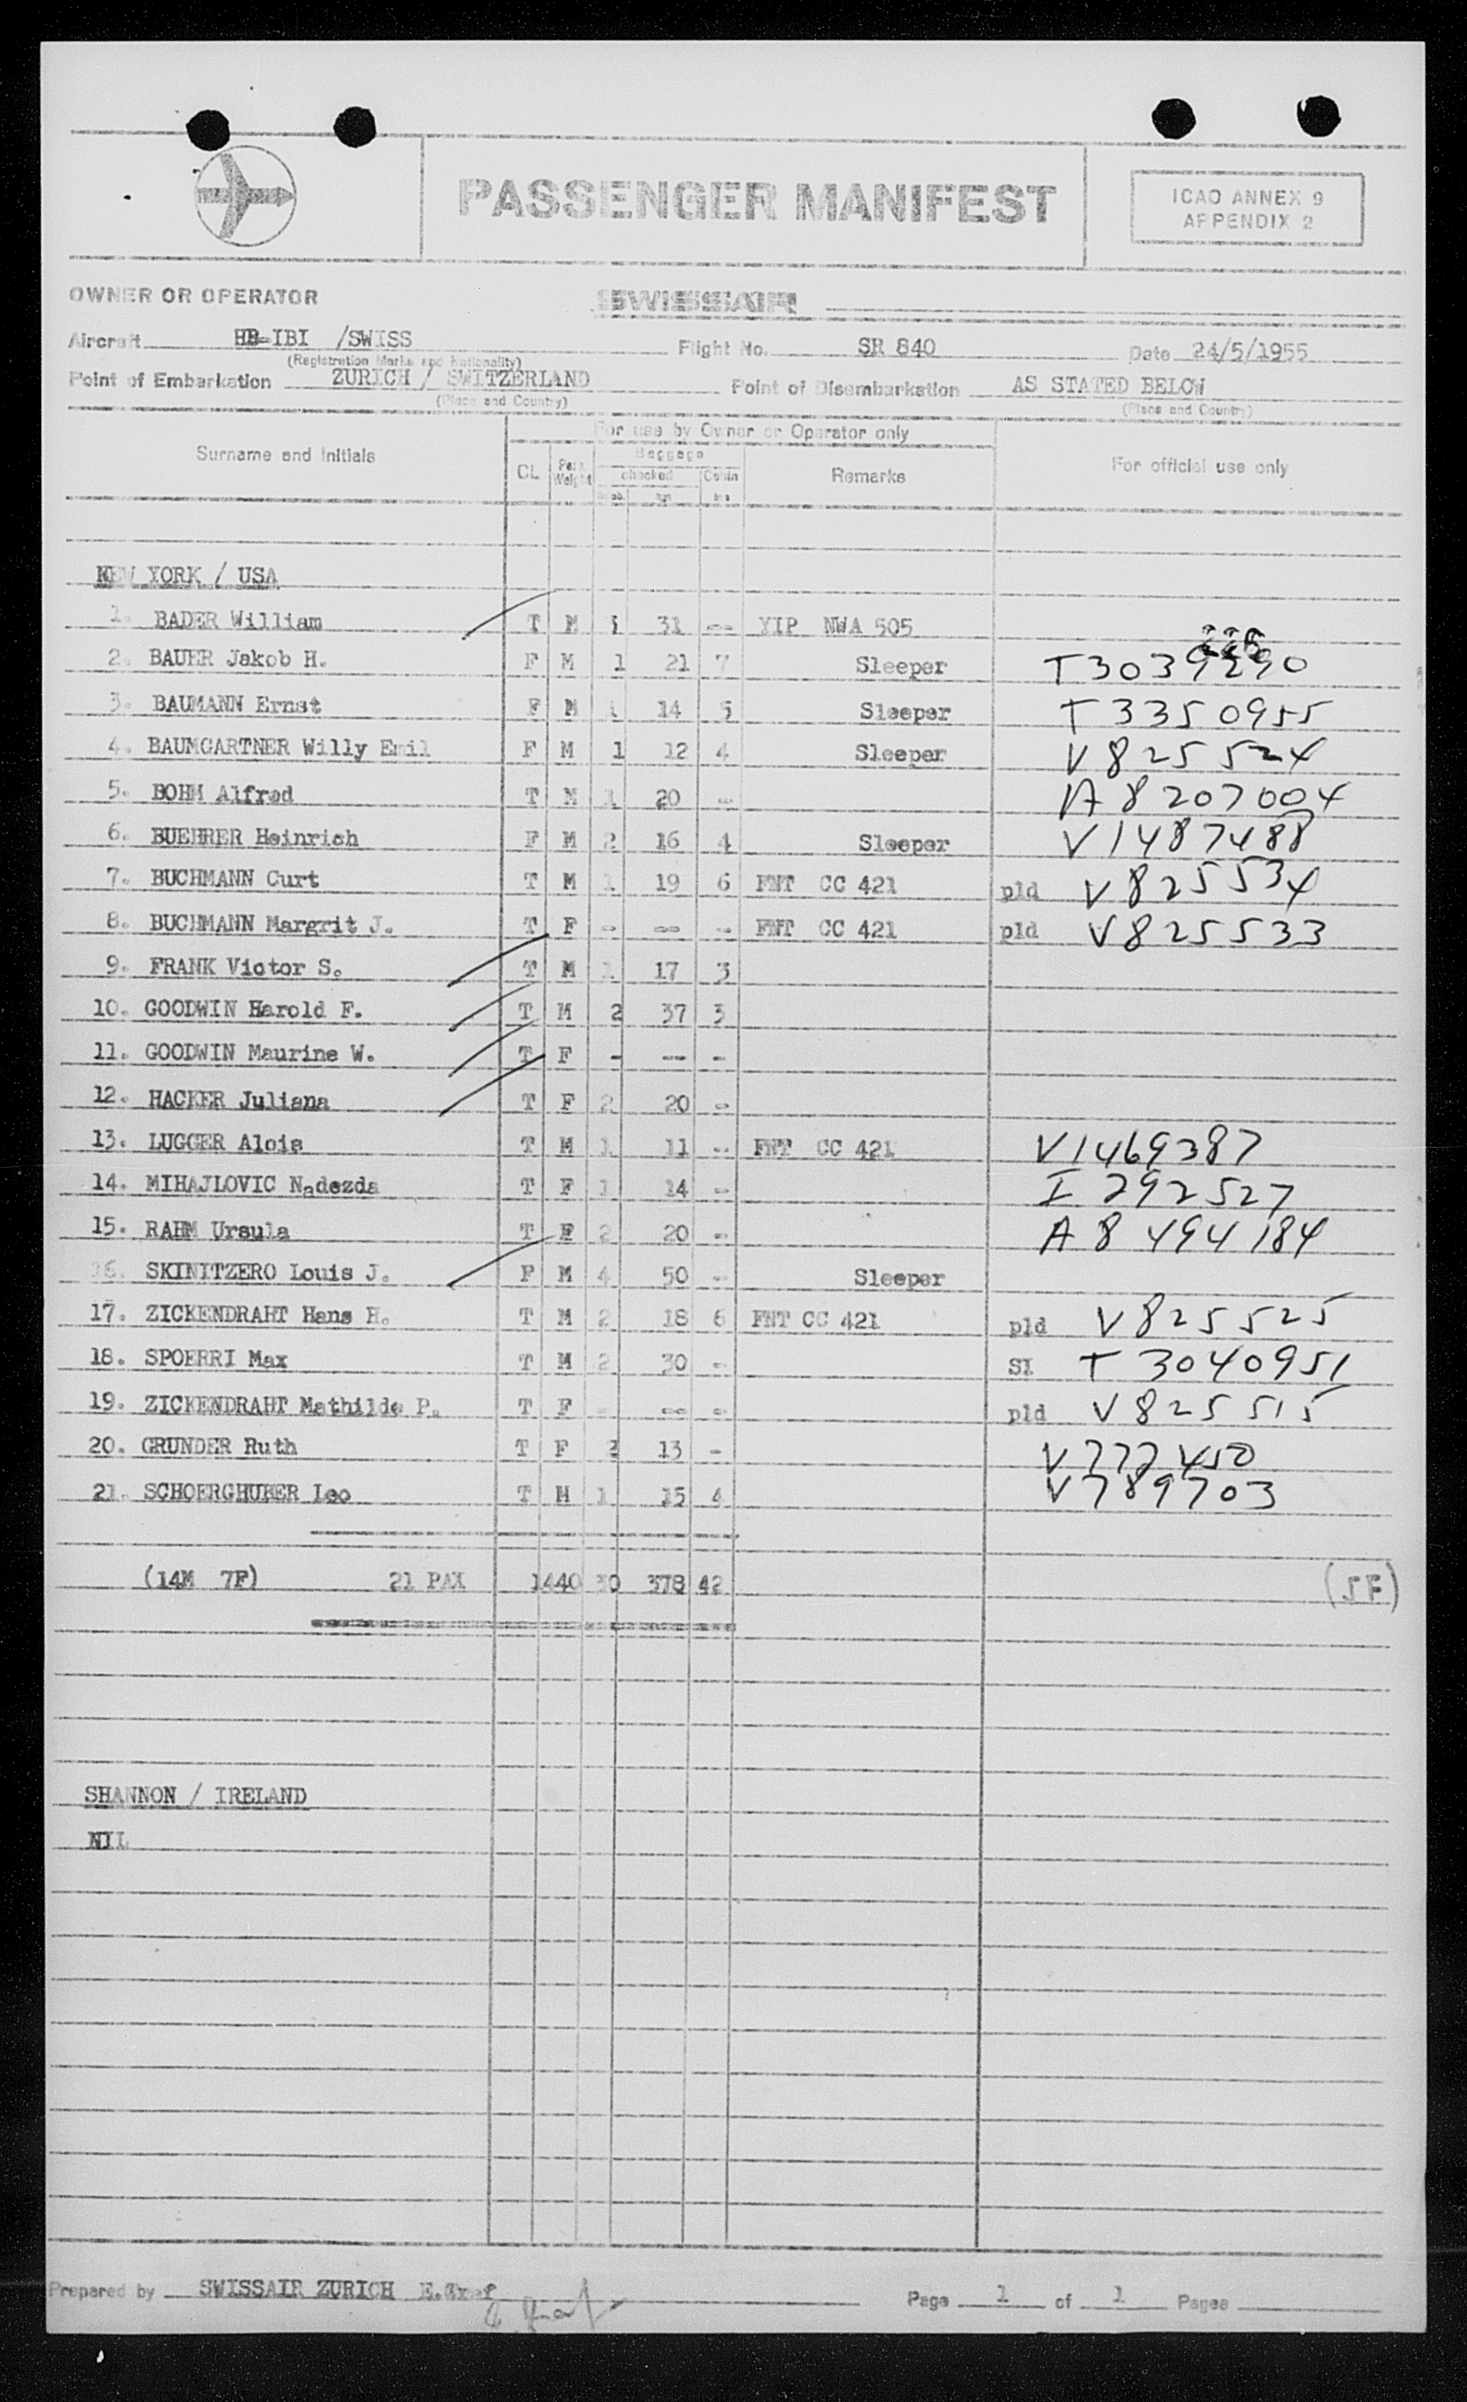 PASSENGER MANIFEST
ICAO ANNEX 9
APPENDIX 2
OWNER OR OPERATOR SWISSAIR
Aircraft HB-IBI /SWISS Flight No. SR 840 Date 24/5/1955
(Registration Marks and Nationality)
Point of Embarkation ZURICH / SWITZERLAND Point of Disembarkation AS STATED BELOW
(Place and Country) (Place and Country)
For use by Owner or Operator only
Surname and Initials CL Pass Weight Baggage checked Cabin Remarks For official use only
NEW YORK / USA
1. BADER William T M 1 31 -- YIP NWA 505
2. BAUER Jakob H. F M 1 21 7 Sleeper T3039290
3. BAUMANN Ernst F M 1 14 5 Sleeper T 3350955
4. BAUMGARTNER Willy Emil F M 1 12 4 Sleeper V 825524
5. BOHM Alfred T M 1 20 - A 8207004
6. BUEHRER Heinrich F M 2 16 4 Sleeper V 1487488
7. BUCHMANN Curt T M 1 19 6 FNT CC 421 pld V825534
8. BUCHMANN Margrit J. T F - -- - FNT CC 421 pld V825533
9. FRANK Victor S. T M 1 17 3
10. GOODWIN Harold F. T M 2 37 3
11. GOODWIN Maurine W. T F - -- -
12. HACKER Juliana T F 2 20 -
13. LUGGER Alois T M 1 11 -- FNT CC 421 V1469387
14. MIHAJLOVIC Nadezda T F 1 14 - I 292527
15. RAHM Ursula T F 2 20 - A 8 494 184
16. SKINITZERO Louis J. F M 4 50 - Sleeper
17. ZICKENDRAHT Hans H. T M 2 18 6 FNT CC 421 pld V 825525
18. SPOERRI Max T M 2 30 - SI T 3040951
19. ZICKENDRAHT Mathilde P. T F - -- - pld V 825515
20. GRUNDER Ruth T F 2 13 - V 777450
21. SCHOERGHUBER Leo T M 1 15 4 V789703
(14M 7F) 21 PAX 1440 30 378 42 (5F)
SHANNON / IRELAND
NIL
Prepared by SWISSAIR ZURICH E.Graf Page 1 of 1 Pages